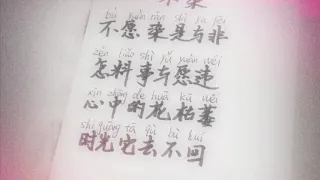 不愿染是与非
zěn liào shì yǔ yuàn wéi
怎料事与愿违
xīn zhōng de huā kū wěi
心中的花枯萎
shí guāng tā qù bù huí
时光它去不回